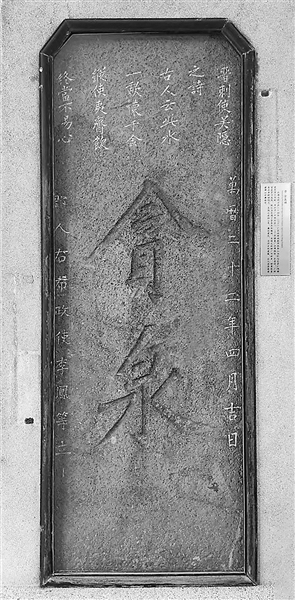 晉刺史吳隱
之詩
古人云此水
一歃懷千金
縱使夷齊飲
終當不易心
萬曆二十二年四月吉日
貪泉
人右布政使李鳳等立